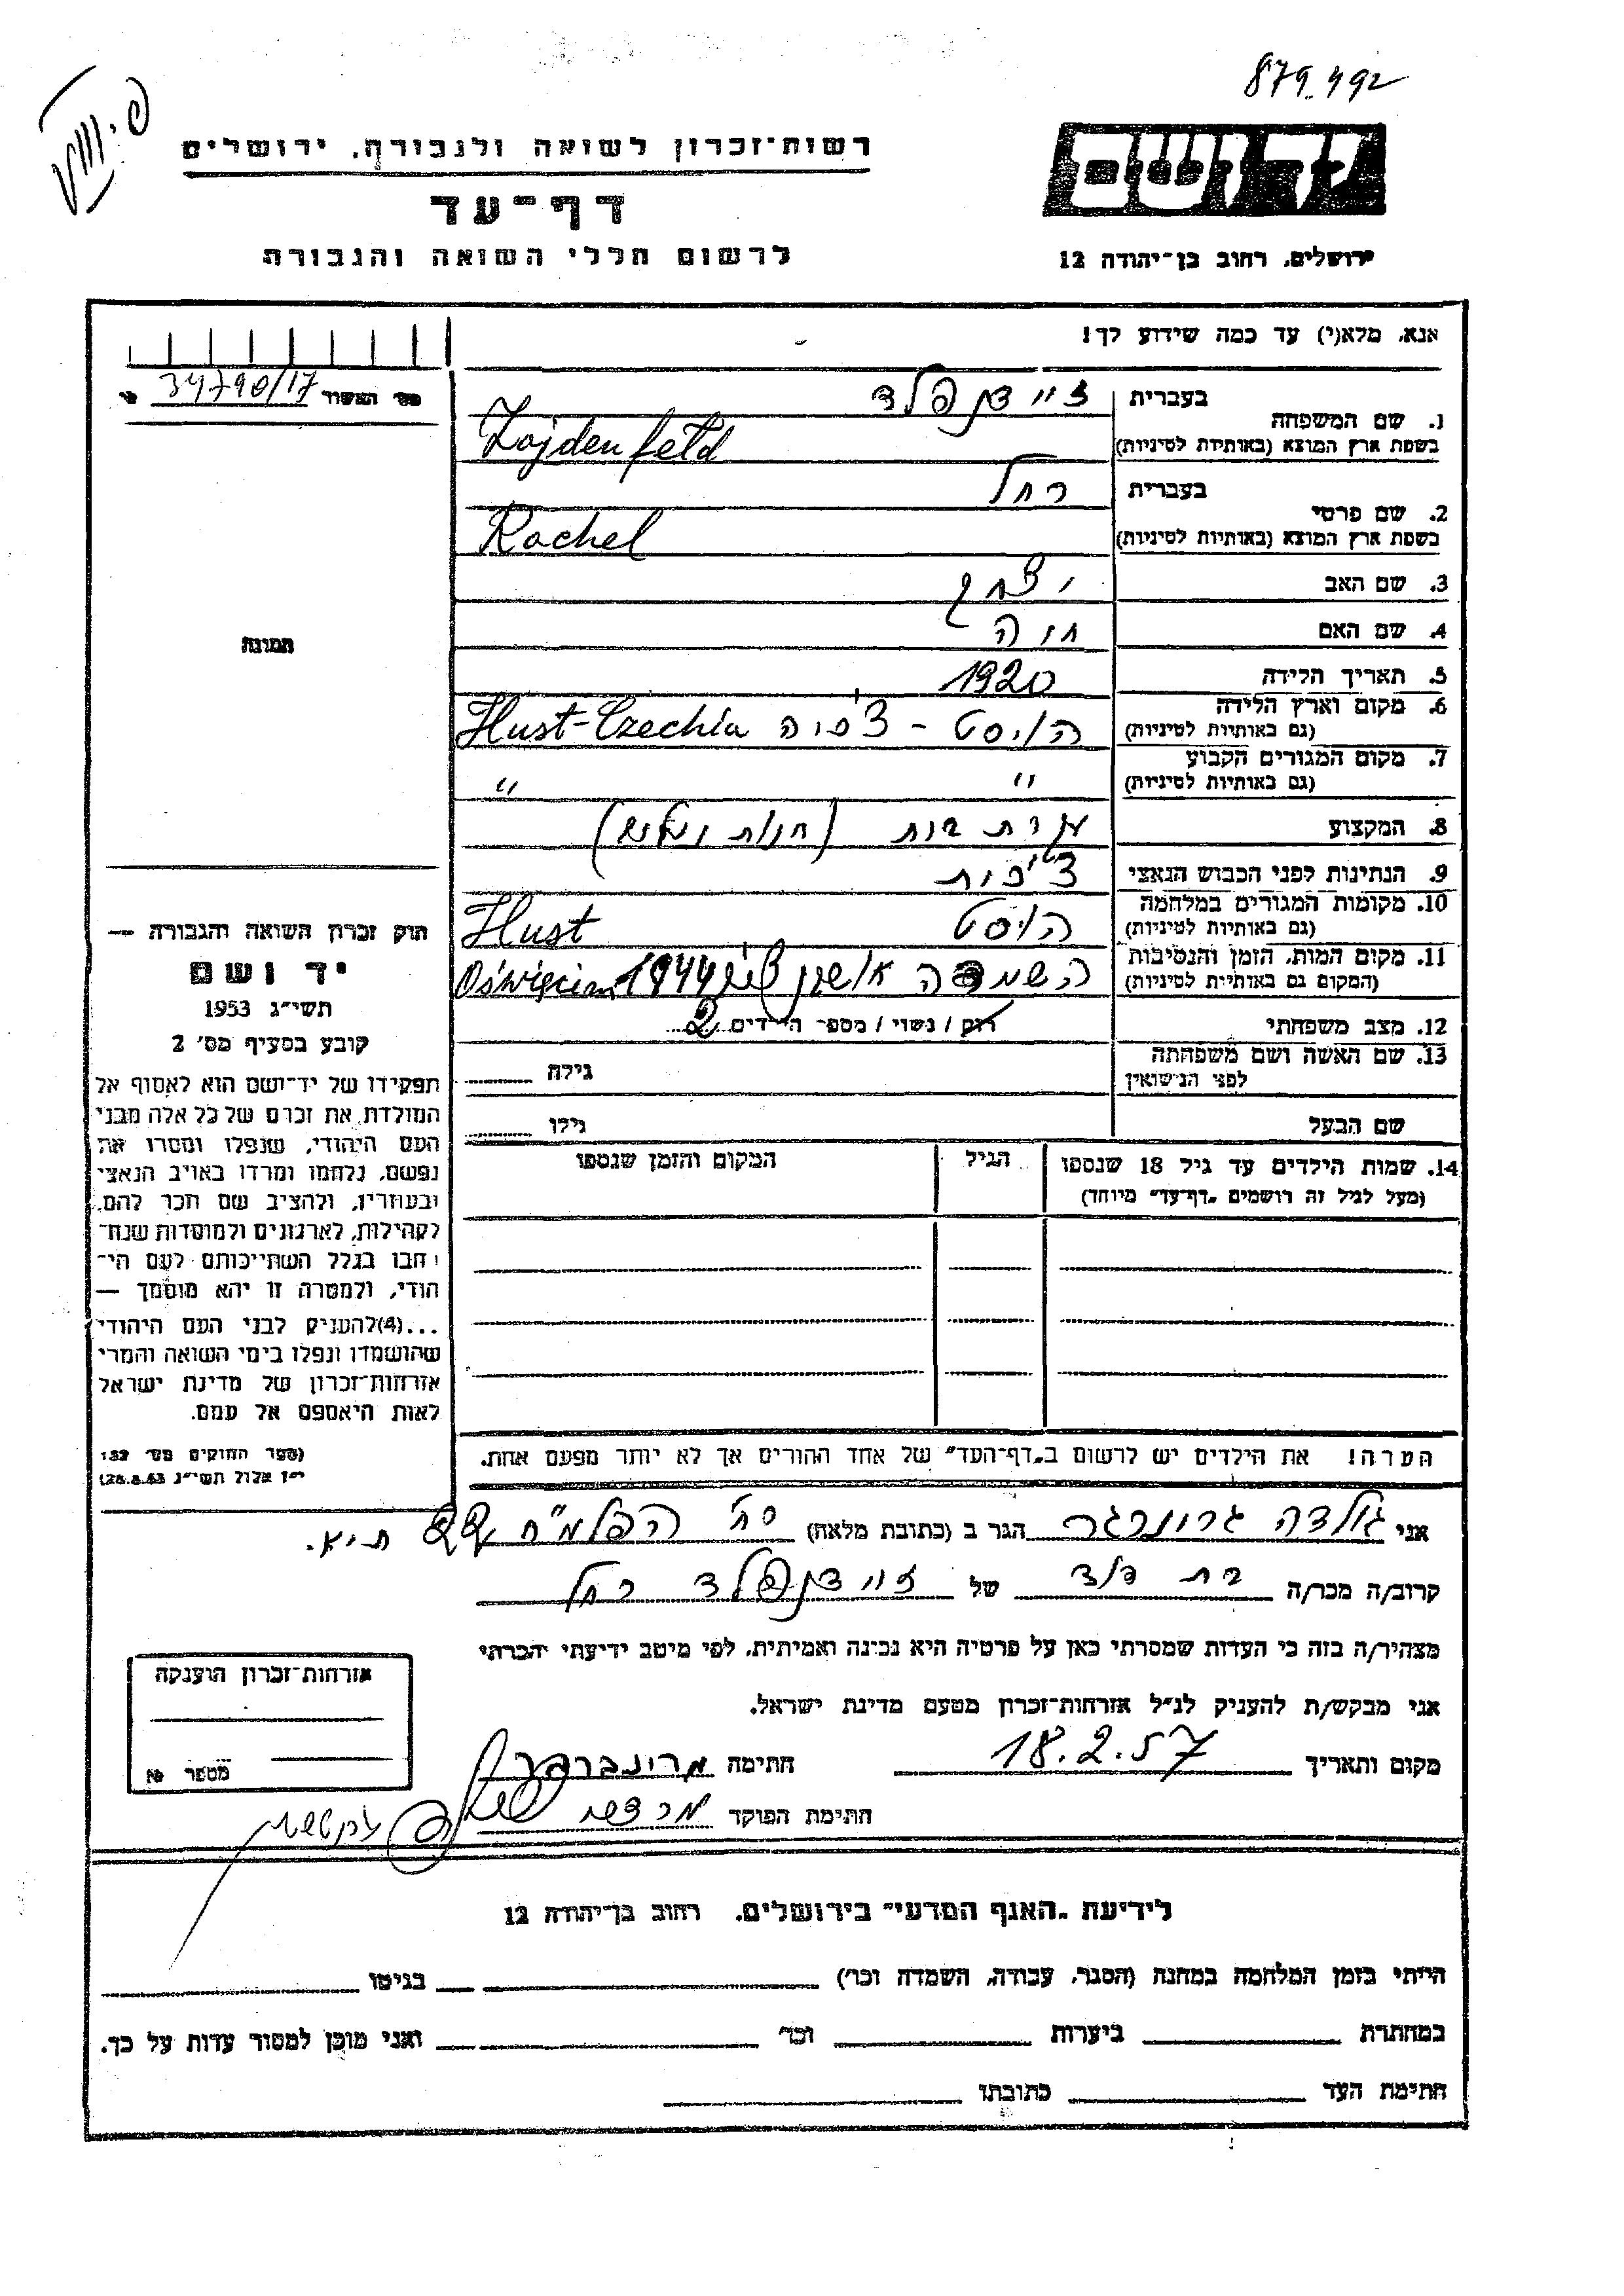 879.492
רשות־זכרון לשואה ולגבורה, ירושלים
דף־עד
לרשום חללי השואה והגבורה
יד ושם
ירושלים, רחוב בן־יהודה 12
אנא, מלא(י) עד כמה שידוע לך!
מס' האשור 34790/17
1. שם המשפחה בעברית זיידנפלד
בשפת ארץ המוצא (באותיות לטיניות) Zajdenfeld
2. שם פרטי בעברית רחל
בשפת ארץ המוצא (באותיות לטיניות) Rachel
3. שם האב יצחק
4. שם האם חוה
5. תאריך הלידה 1920
6. מקום וארץ הלידה הוסט - צ'כיה Hust-Czechia
(גם באותיות לטיניות)
7. מקום המגורים הקבוע " "
(גם באותיות לטיניות)
8. המקצוע עזרת בית
9. הנתינות לפני הכבוש הנאצי צ'כית
10. מקומות המגורים במלחמה הוסט Hust
(גם באותיות לטיניות)
11. מקום המות, הזמן והנסיבות השמדה 1944 Oświęcim
(המקום גם באותיות לטיניות)
12. מצב משפחתי רוק / נשוי / מספר הילדים 2
13. שם האשה ושם משפחתה גילה
לפני הנישואין
שם הבעל גילו
14. שמות הילדים עד גיל 18 שנספו הגיל המקום והזמן שנספו
(מעל לגיל זה רושמים "דף־עד" מיוחד)
תמונה
חוק זכרון השואה והגבורה —
יד ושם
תשי"ג 1953
קובע בסעיף מס' 2
תפקידו של יד־ושם הוא לאסוף אל
המולדת את זכרם של כל אלה מבני
העם היהודי, שנפלו ומסרו את
נפשם, נלחמו ומרדו באויב הנאצי
ובעוזריו, ולהציב שם וזכר להם,
לקהילות, לארגונים ולמוסדות שנח־
רבו בגלל השתייכותם לעם הי־
הודי, ולמטרה זו יהא מוסמך —
...(4) להעניק לבני העם היהודי
שהושמדו ונפלו בימי השואה והמרי
אזרחות־זכרון של מדינת ישראל
לאות היאספם אל עמם.
(ספר החוקים מס' 132
י"ז אלול תשי"ג 28.8.53)
הערה! את הילדים יש לרשום ב"דף־העד" של אחד ההורים אך לא יותר מפעם אחת.
אני גולדה גרונברגר הגר ב (כתובת מלאה) רח' הפלמ"ח 22 ת"א.
קרוב/ה מכר/ה בת דוד של זיידנפלד רחל
מצהיר/ה בזה כי העדות שמסרתי כאן על פרטיה היא נכונה ואמיתית, לפי מיטב ידיעתי והכרתי
אני מבקש/ת להעניק לנ"ל אזרחות־זכרון מטעם מדינת ישראל.
מקום ותאריך 18.2.57 חתימה
חתימת הפוקד
אזרחות־זכרון הוענקה
מספר
לידיעת "האגף המדעי" בירושלים, רחוב בן־יהודה 12
הייתי בזמן המלחמה במחנה (הסגר, עבודה, השמדה וכו') בגיטו
במחתרת ביערות וכו' ואני מוכן למסור עדות על כך.
חתימת העד כתובתו